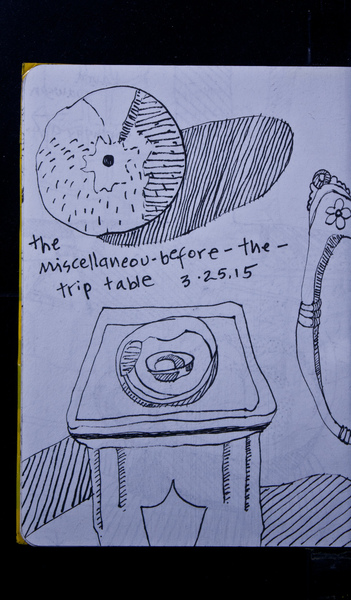 the
miscellaneou-before-the-
trip table 3.25.15